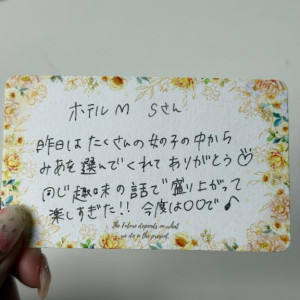 ホテルM Sさん
昨日はたくさんの女の子の中から
みあを選んでくれてありがとう♡
同じ趣味の話で盛り上がって
楽しすぎた!! 今度は〇〇で♪
The Future depends on what
we do in the present.